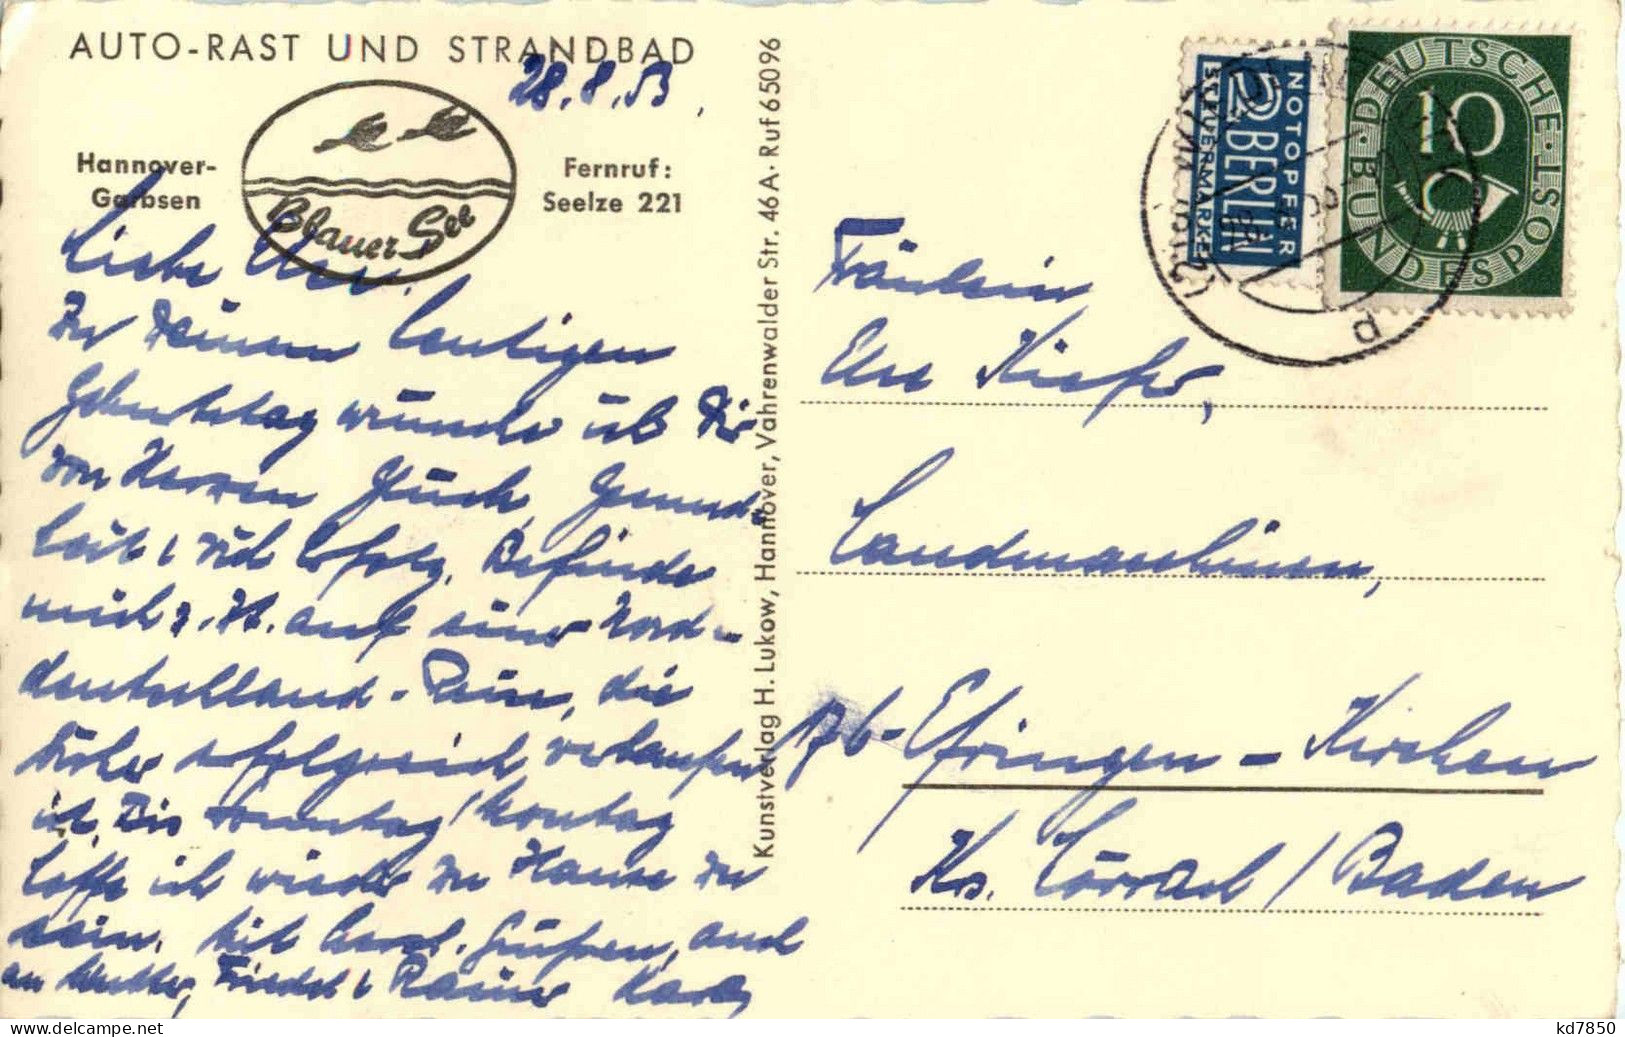 AUTO-RAST UND STRANDBAD
28.8.53,
Hannover-
Garbsen
Blauer See
Fernruf:
Seelze 221
Liebe
Zu Deinem heutigen
Geburtstag wünsche ich Dir
von Herzen Glück, Gesund-
heit & viel Erfolg. Befinde
mich z. Zt. auf einer Nord-
deutschland-Reise, die
bisher erfolgreich verlaufen
ist. Bis Sonntag/Montag
hoffe ich wieder zu Hause zu
sein. Mit herzl. Grüßen, auch
an Mutter, Friedel & Rainer
Kunstverlag H. Lukow, Hannover, Vahrenwalder Str. 46 A · Ruf 65096
NOTOPFER
2 BERLIN
STEUERMARKE
DEUTSCHE BUNDESPOST
10
Fräulein
Kiefer,
Landmaschinen,
17b-Efringen-Kirchen
Krs. Lörrach/Baden
kd7850